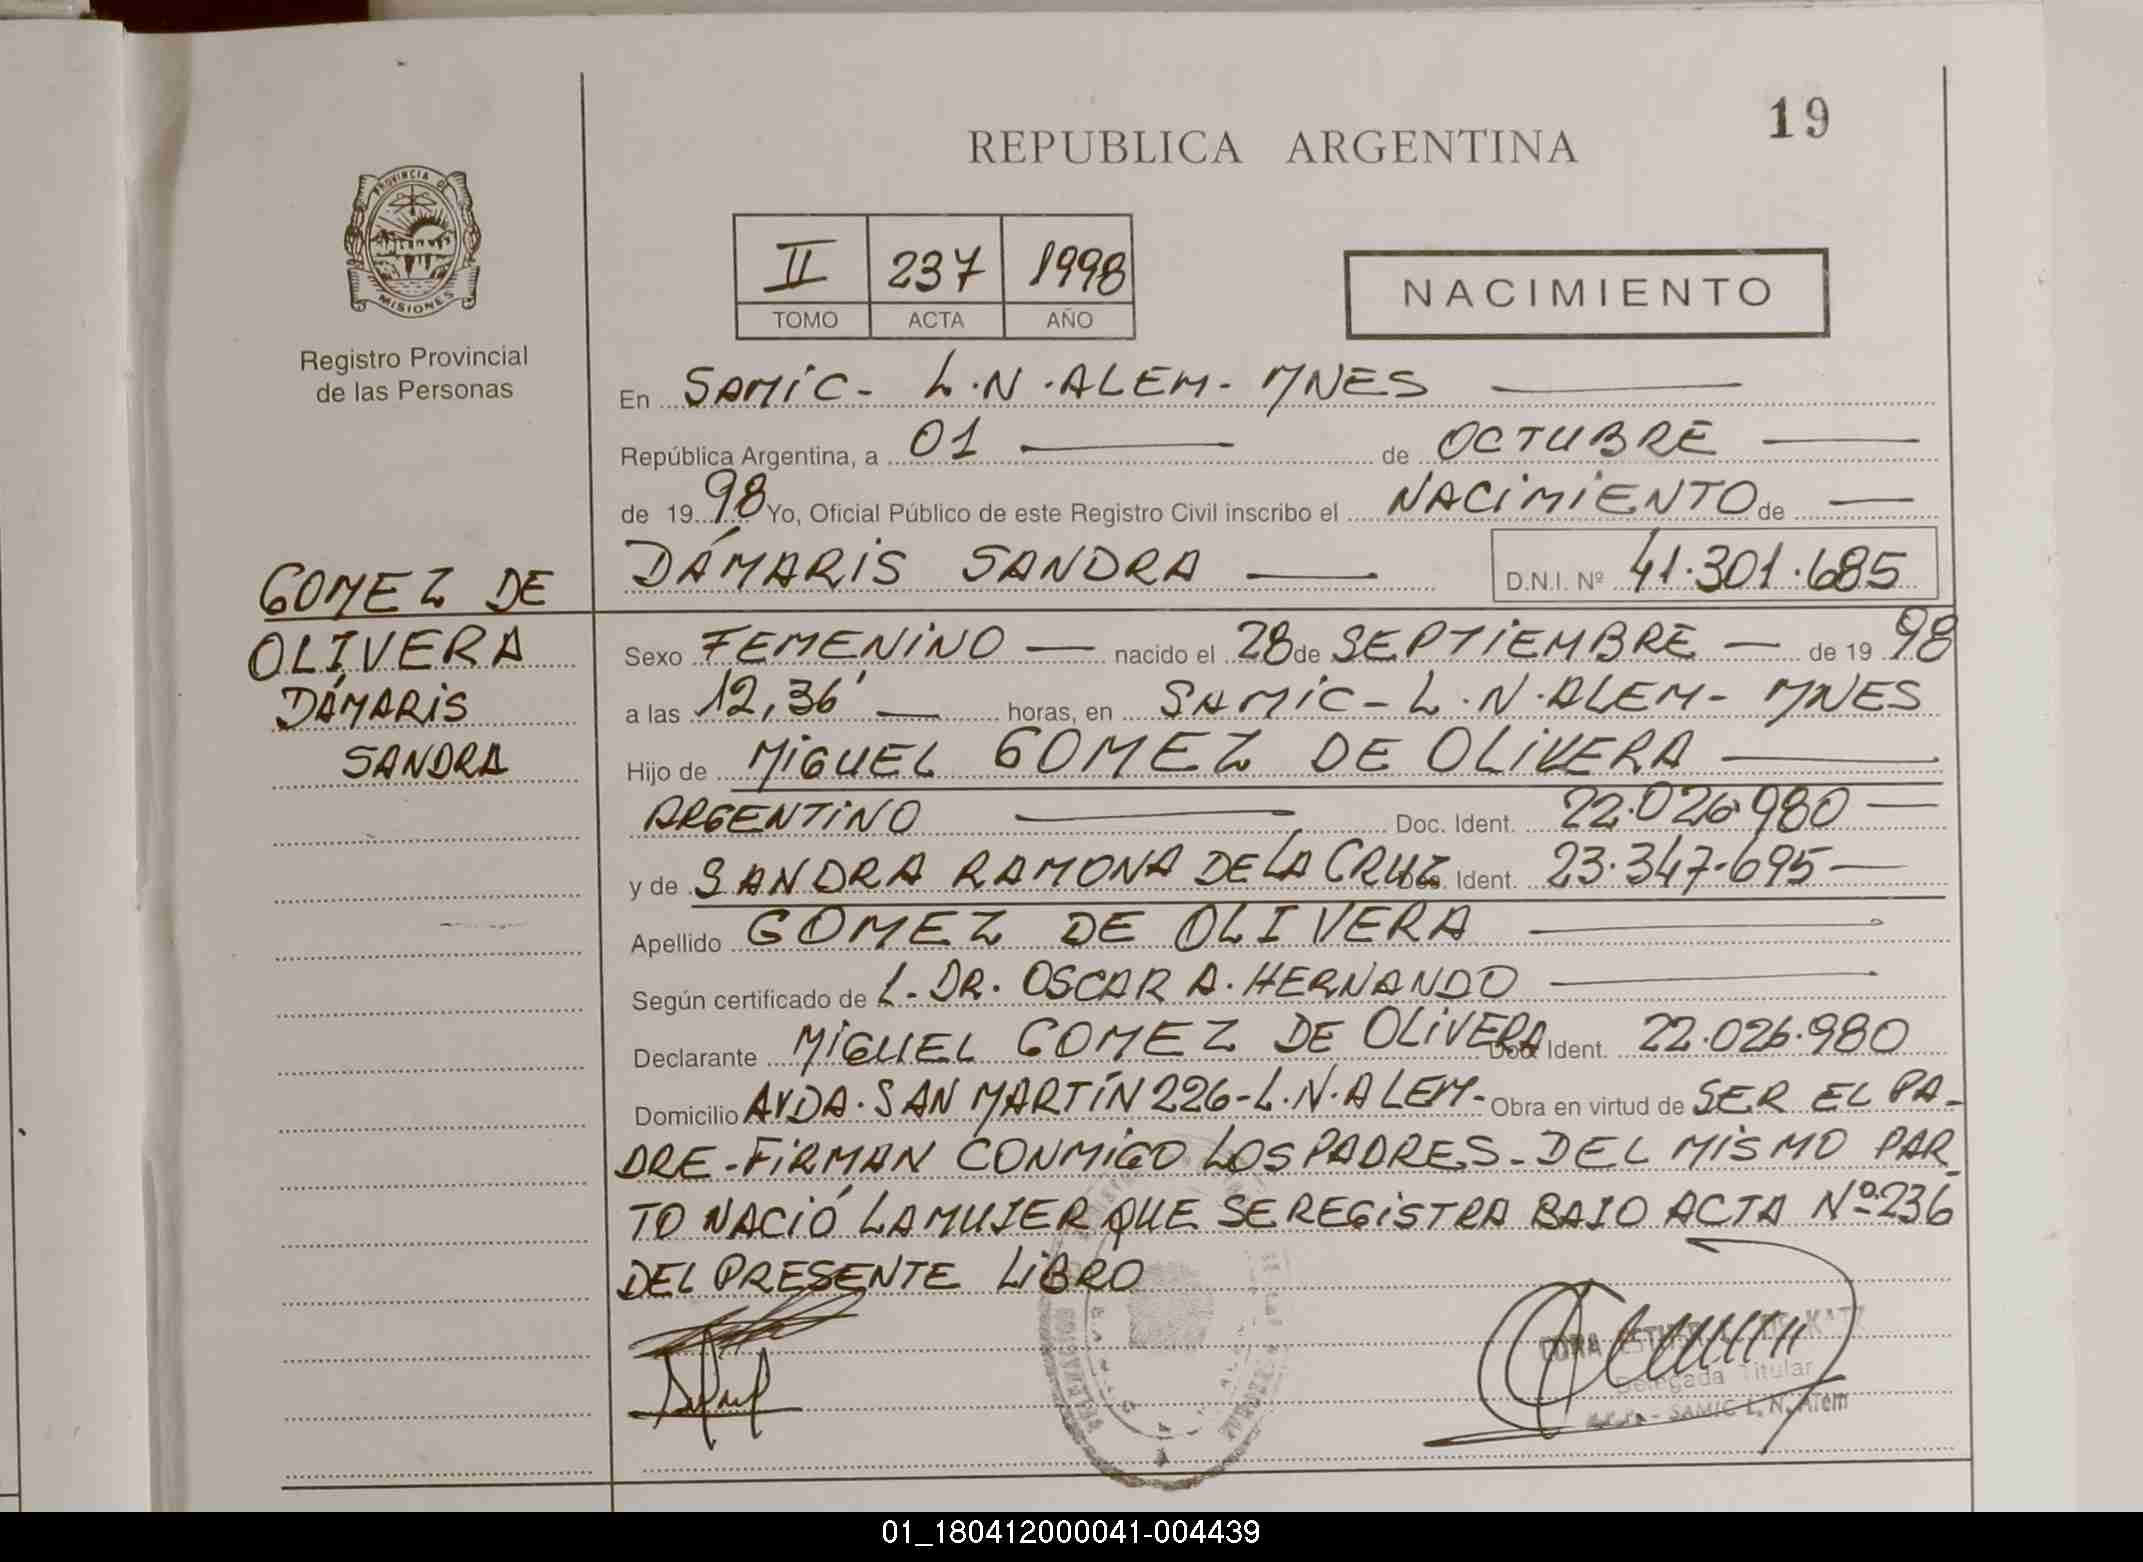 19
REPUBLICA ARGENTINA
PROVINCIA DE
MISIONES
Registro Provincial
de las Personas
II 237 1998
TOMO ACTA AÑO
NACIMIENTO
En SAMIC - L.N. ALEM - MNES
República Argentina, a 01 de OCTUBRE
de 1998 Yo, Oficial Público de este Registro Civil inscribo el NACIMIENTO de
DÁMARIS SANDRA D.N.I. Nº 41.301.685
GOMEZ DE
OLIVERA
DÁMARIS
SANDRA
Sexo FEMENINO nacido el 28 de SEPTIEMBRE de 1998
a las 12,36' horas, en SAMIC - L.N. ALEM - MNES
Hijo de MIGUEL GOMEZ DE OLIVERA
ARGENTINO Doc. Ident. 22.026.980
y de SANDRA RAMONA DE LA CRUZ Doc. Ident. 23.347.695
Apellido GOMEZ DE OLIVERA
Según certificado de L. DR. OSCAR A. HERNANDO
Declarante MIGUEL GOMEZ DE OLIVERA Doc. Ident. 22.026.980
Domicilio AVDA. SAN MARTÍN 226 - L.N. ALEM - Obra en virtud de SER EL PA-
DRE - FIRMAN CONMIGO LOS PADRES - DEL MISMO PAR-
TO NACIÓ LA MUJER QUE SE REGISTRA BAJO ACTA Nº 236
DEL PRESENTE LIBRO
Delegada Titular
SAMIC L. N. Alem
01_180412000041-004439